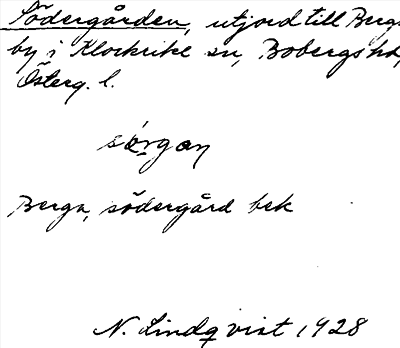 Södergården, utjord till Berga
by i Klockrike sn, Bobergs hd,
Österg. l.
sörgan
Berga, södergård bek
N. Lindqvist 1928